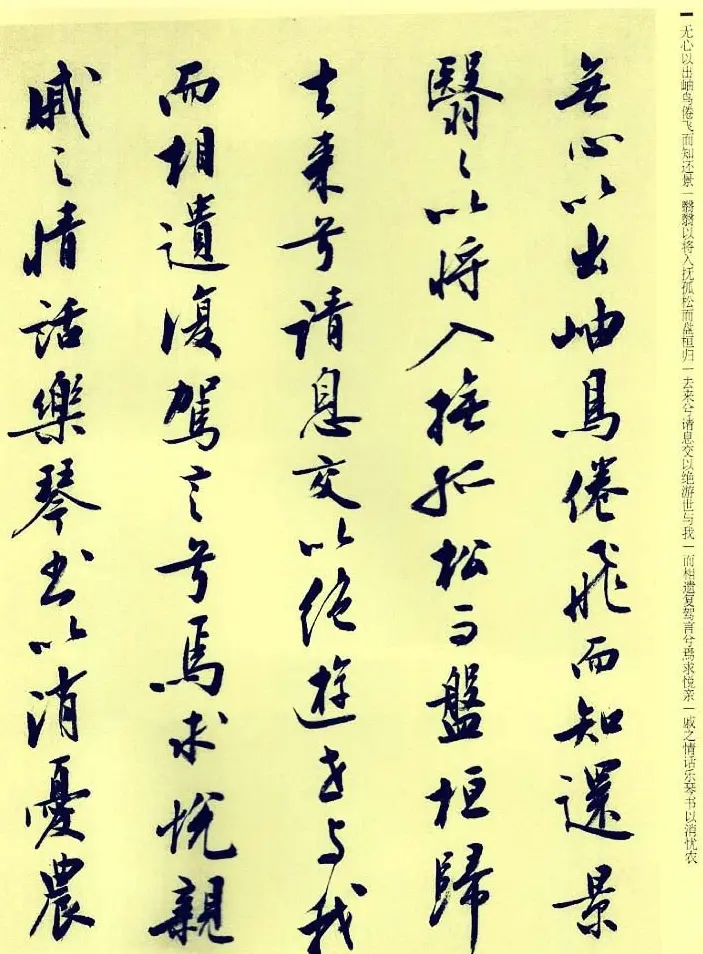 无心以出岫鸟倦飞而知还景|翳翳以将入抚孤松而盘桓归|去来兮请息交以绝游世与我|而相遗复驾言兮焉求悦亲|戚之情话乐琴书以消忧农
無心以出岫鳥倦飛而知還景
翳〻以将入撫孤松而盤桓歸
去来兮请息交以绝遊世与我
而相遺復駕言兮焉求悦親
戚之情话樂琴书以消憂農